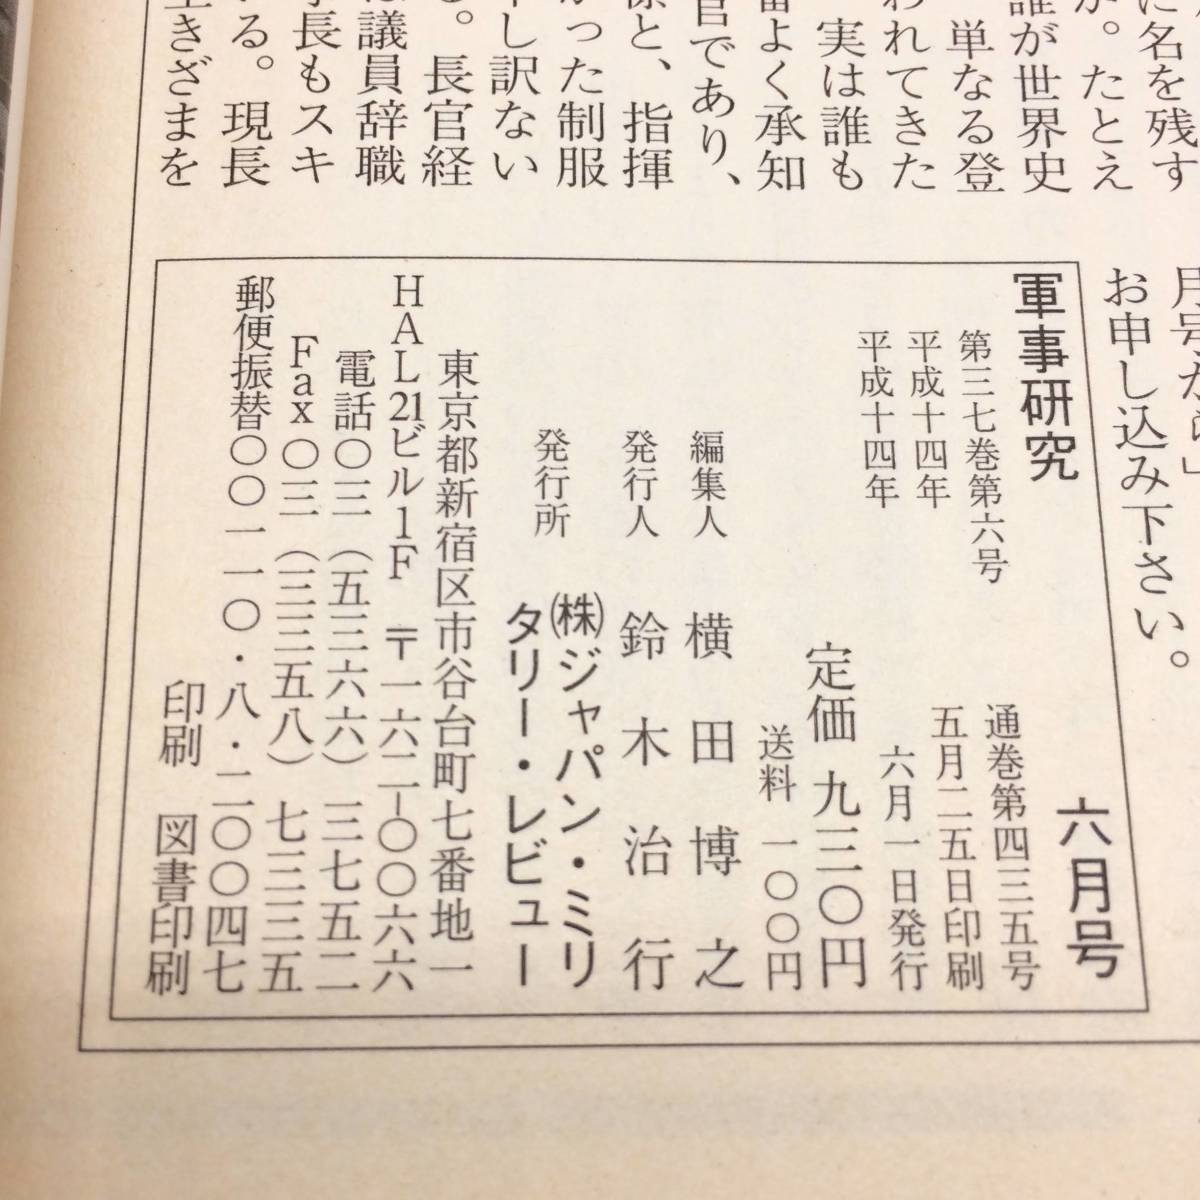 に名を残す
か。たとえ
誰が世界史
単なる登
われてきた
実は誰も
番よく承知
官であり、
様と、指揮
かった制服
申し訳ない
る。長官経
は議員辞職
事長もスキ
いる。現長
生きざまを
月号から」
お申し込み下さい。
軍事研究 六月号
第三七巻第六号 通巻第四三五号
平成十四年 五月二五日印刷
平成十四年 六月一日発行
定価 九三〇円
送料 一〇〇円
編集人 横田博之
発行人 鈴木治行
発行所 ㈱ジャパン・ミリ
タリー・レビュー
東京都新宿区市谷台町七番地一
HAL21ビル1F 〒一六二-〇〇六六
電話〇三(五三六六)三七五二
Fax〇三(三三五八)七三三五
郵便振替〇〇一一〇・八・二〇〇四七
印刷 図書印刷